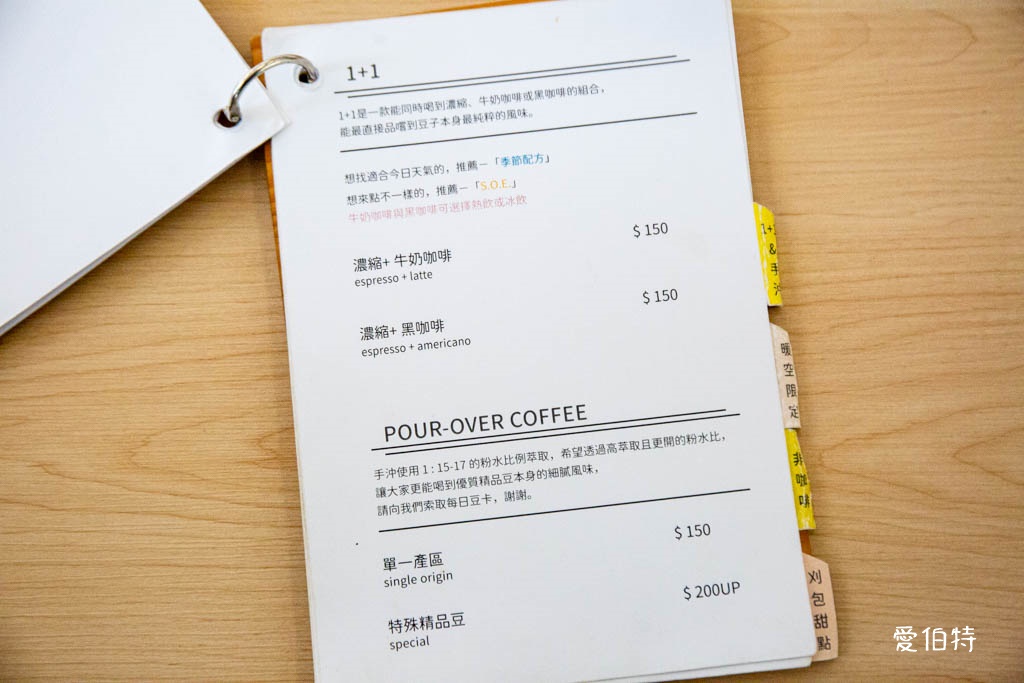 1+1
1+1是一款能同時喝到濃縮、牛奶咖啡或黑咖啡的組合，
能最直接品嚐到豆子本身最純粹的風味。
想找適合今日天氣的，推薦－「季節配方」
想來點不一樣的，推薦－「S.O.E.」
牛奶咖啡與黑咖啡可選擇熱飲或冰飲
濃縮+ 牛奶咖啡 $ 150
espresso + latte
濃縮+ 黑咖啡 $ 150
espresso + americano
POUR-OVER COFFEE
手沖使用 1 : 15-17 的粉水比例萃取，希望透過高萃取且更開的粉水比，
讓大家更能喝到優質精品豆本身的細膩風味，
請向我們索取每日豆卡，謝謝。
單一產區 $ 150
single origin
特殊精品豆 $ 200UP
special
1+1
&
手
沖
暖
空
限
定
非
咖
啡
刈
包
甜
點
愛伯特